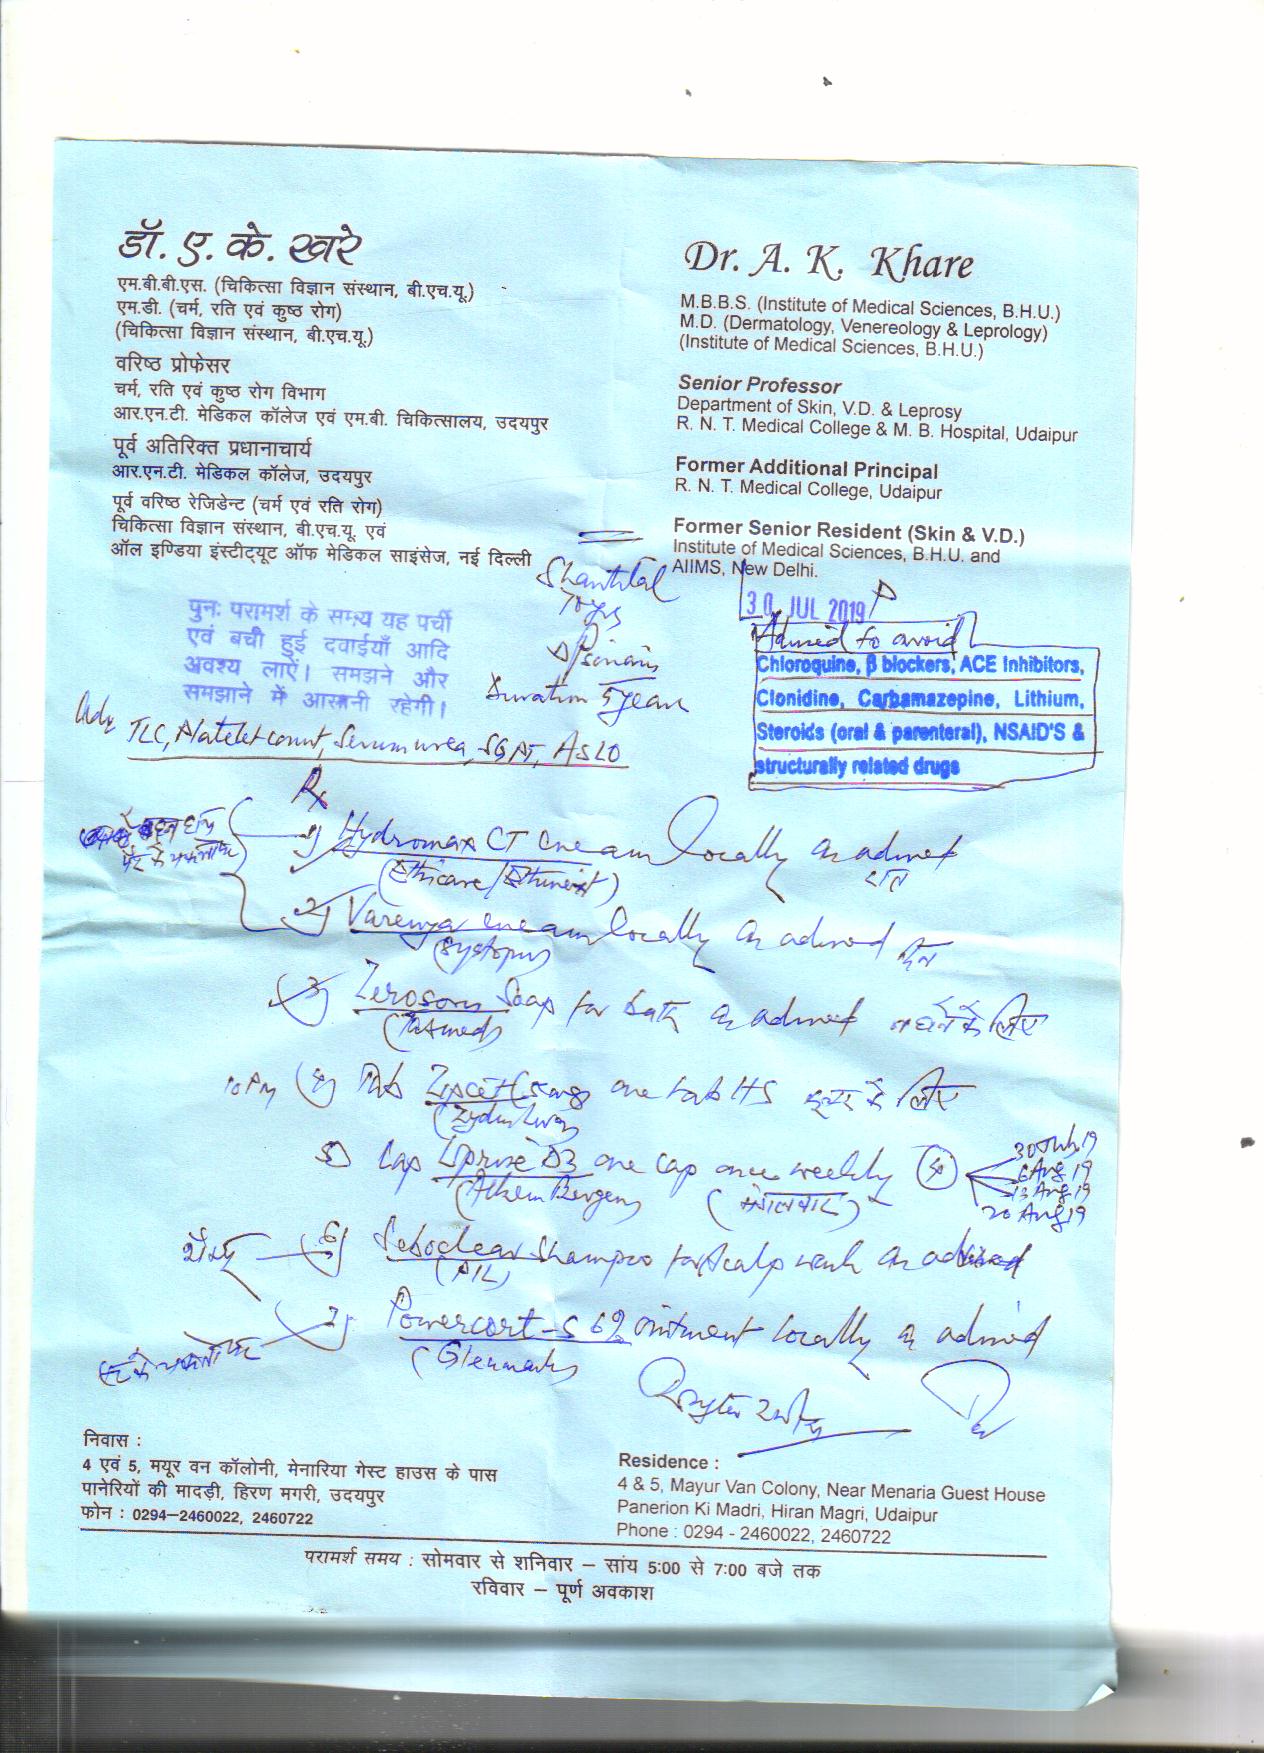 डॉ. ए. के. खरे
एम.बी.बी.एस. (चिकित्सा विज्ञान संस्थान, बी.एच.यू.)
एम.डी. (चर्म, रति एवं कुष्ठ रोग)
(चिकित्सा विज्ञान संस्थान, बी.एच.यू.)
वरिष्ठ प्रोफेसर
चर्म, रति एवं कुष्ठ रोग विभाग
आर.एन.टी. मेडिकल कॉलेज एवं एम.बी. चिकित्सालय, उदयपुर
पूर्व अतिरिक्त प्रधानाचार्य
आर.एन.टी. मेडिकल कॉलेज, उदयपुर
पूर्व वरिष्ठ रेजिडेन्ट (चर्म एवं रति रोग)
चिकित्सा विज्ञान संस्थान, बी.एच.यू. एवं
ऑल इण्डिया इंस्टीट्यूट ऑफ मेडिकल साइंसेज, नई दिल्ली
Dr. A. K. Khare
M.B.B.S. (Institute of Medical Sciences, B.H.U.)
M.D. (Dermatology, Venereology & Leprology)
(Institute of Medical Sciences, B.H.U.)
Senior Professor
Department of Skin, V.D. & Leprosy
R. N. T. Medical College & M. B. Hospital, Udaipur
Former Additional Principal
R. N. T. Medical College, Udaipur
Former Senior Resident (Skin & V.D.)
Institute of Medical Sciences, B.H.U. and
AIIMS, New Delhi.
पुनः परामर्श के समय यह पर्ची
एवं बची हुई दवाईयाँ आदि
अवश्य लाऐं। समझने और
समझाने में आसानी रहेगी।
Shantilal
Duration 5 year
30 JUL 2019
Advised to avoid
Chloroquine, β blockers, ACE Inhibitors,
Clonidine, Carbamazepine, Lithium,
Steroids (oral & parenteral), NSAID'S &
structurally related drugs
Adv TLC, Platelet count, Serum urea, SGPT, ASLO
Rx
1) Hydromax CT Cream locally as advised
रात
(Ethicare/
2) Varenya cream locally as advised दिन
(Systopus)
3) soap for bath as advised नहाने के लिए
10 PM 4) Tab Zipcet (5mg) one tab HS के लिए
5) Cap Uprise D3 one cap once weekly (4) 30 July 19
6 Aug 19
13 Aug 19
20 Aug 19
(Alkem (मंगलवार)
शैम्पू 6) Seboclear Shampoo for scalp wash as advised
7) Powercort-S 6% ointment locally as advised
(Glenmark)
निवास :
4 एवं 5, मयूर वन कॉलोनी, मेनारिया गेस्ट हाउस के पास
पानेरियों की मादड़ी, हिरण मगरी, उदयपुर
फोन : 0294-2460022, 2460722
Residence :
4 & 5, Mayur Van Colony, Near Menaria Guest House
Panerion Ki Madri, Hiran Magri, Udaipur
Phone : 0294 - 2460022, 2460722
परामर्श समय : सोमवार से शनिवार – सांय 5:00 से 7:00 बजे तक
रविवार – पूर्ण अवकाश